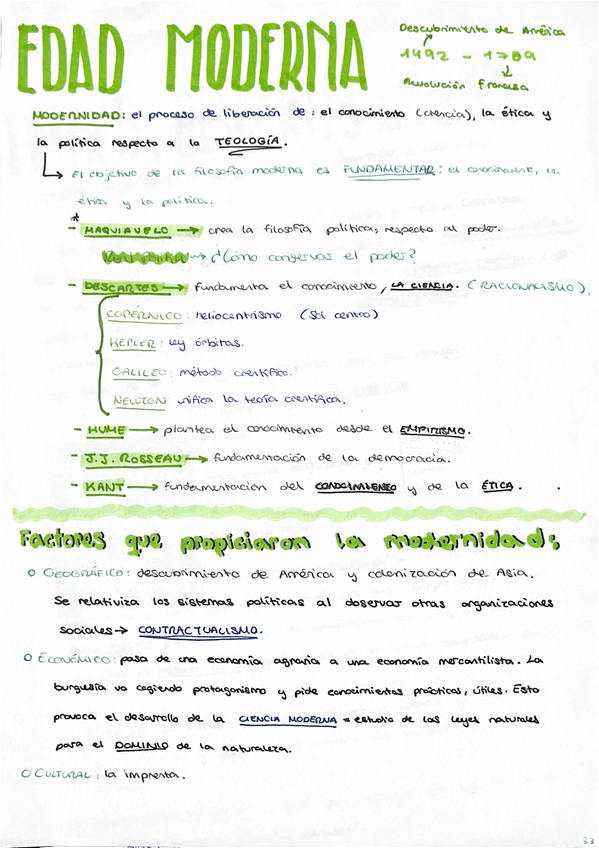 EDAD MODERNA
Descubrimiento de América
1492 - 1789
Revolución francesa
MODERNIDAD: el proceso de liberación de: el conocimiento (ciencia), la ética y
la política respecto a la TEOLOGÍA.
El objetivo de la filosofía moderna es FUNDAMENTAR: el conocimiento, la
ética y la política.
*
- MAQUIAVELO → crea la filosofía política, respecto al poder.
→ ¿Cómo conservar el poder?
- DESCARTES → fundamenta el conocimiento, LA CIENCIA. (RACIONALISMO).
COPÉRNICO: heliocentrismo (Sol centro)
KEPLER: ley órbitas.
GALILEO: método científico.
NEWTON: unifica la teoría científica.
- HUME → plantea el conocimiento desde el EMPIRISMO.
- J.J. ROSSEAU → fundamentación de la democracia.
- KANT → fundamentación del CONOCIMIENTO y de la ÉTICA.
Factores que propiciaron la modernidad:
o GEOGRÁFICO: descubrimiento de América y colonización de Asia.
Se relativiza los sistemas políticas al observar otras organizaciones
sociales → CONTRACTUALISMO.
o ECONÓMICO: pasa de una economía agraria a una economía mercantilista. La
burguesía va cogiendo protagonismo y pide conocimientos prácticos, útiles. Esto
provoca el desarrollo de la CIENCIA MODERNA = estudio de las leyes naturales
para el DOMINIO de la naturaleza.
o CULTURAL: la imprenta.
33